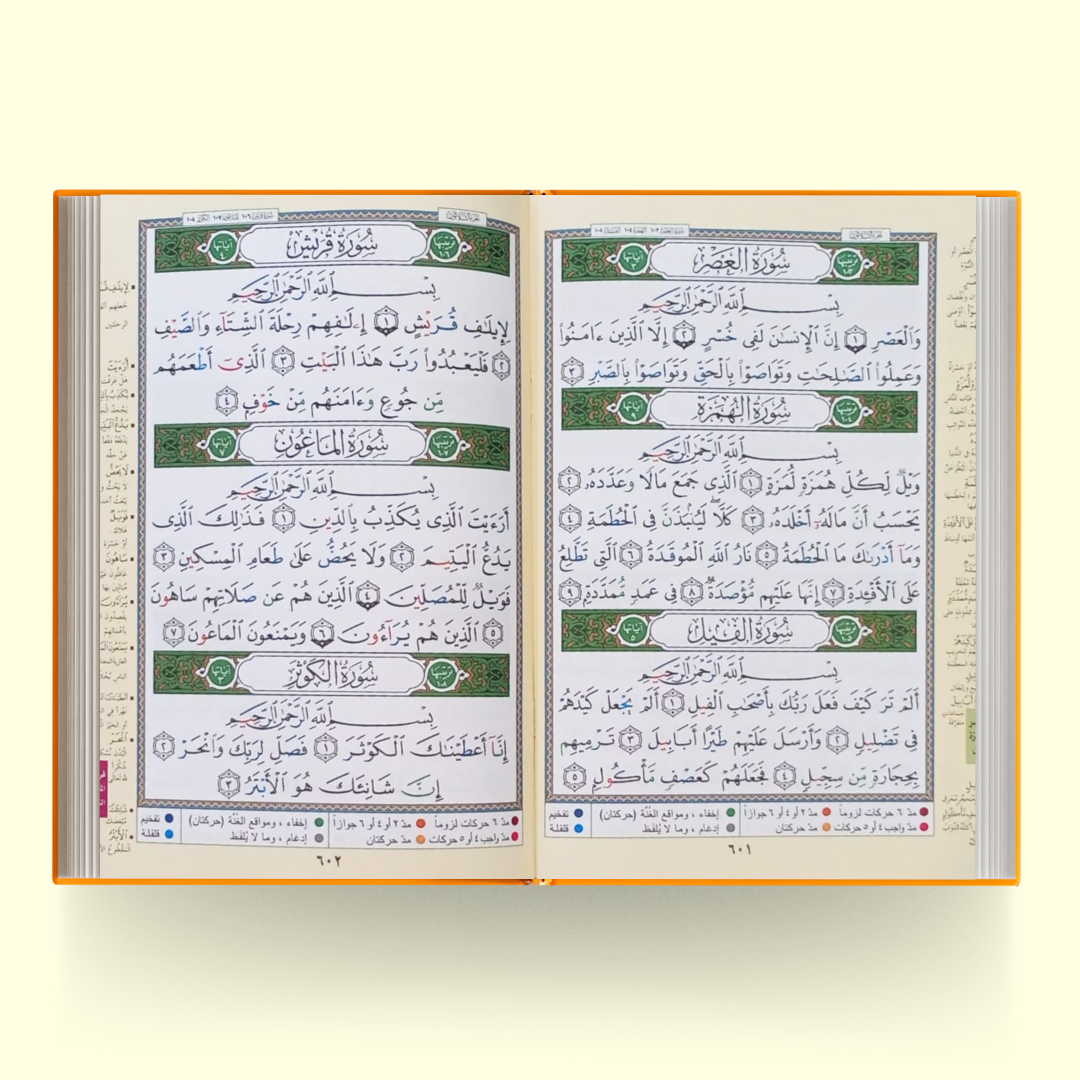 سُورَةُ العَصْرِ
تَرْتِيبُهَا ١٠٣
آيَاتُهَا ٣
بِسْمِ ٱللَّهِ ٱلرَّحْمَٰنِ ٱلرَّحِيمِ
وَٱلْعَصْرِ ١ إِنَّ ٱلْإِنسَٰنَ لَفِى خُسْرٍ ٢ إِلَّا ٱلَّذِينَ ءَامَنُوا۟
وَعَمِلُوا۟ ٱلصَّٰلِحَٰتِ وَتَوَاصَوْا۟ بِٱلْحَقِّ وَتَوَاصَوْا۟ بِٱلصَّبْرِ ٣
سُورَةُ الهُمَزَةِ
تَرْتِيبُهَا ١٠٤
آيَاتُهَا ٩
بِسْمِ ٱللَّهِ ٱلرَّحْمَٰنِ ٱلرَّحِيمِ
وَيْلٌ لِّكُلِّ هُمَزَةٍ لُّمَزَةٍ ١ ٱلَّذِى جَمَعَ مَالًا وَعَدَّدَهُۥ ٢
يَحْسَبُ أَنَّ مَالَهُۥٓ أَخْلَدَهُۥ ٣ كَلَّا ۖ لَيُنۢبَذَنَّ فِى ٱلْحُطَمَةِ ٤
وَمَآ أَدْرَىٰكَ مَا ٱلْحُطَمَةُ ٥ نَارُ ٱللَّهِ ٱلْمُوقَدَةُ ٦ ٱلَّتِى تَطَّلِعُ
عَلَى ٱلْأَفْـِٔدَةِ ٧ إِنَّهَا عَلَيْهِم مُّؤْصَدَةٌ ٨ فِى عَمَدٍ مُّمَدَّدَةٍۭ ٩
سُورَةُ الفِيلِ
تَرْتِيبُهَا ١٠٥
آيَاتُهَا ٥
بِسْمِ ٱللَّهِ ٱلرَّحْمَٰنِ ٱلرَّحِيمِ
أَلَمْ تَرَ كَيْفَ فَعَلَ رَبُّكَ بِأَصْحَٰبِ ٱلْفِيلِ ١ أَلَمْ يَجْعَلْ كَيْدَهُمْ
فِى تَضْلِيلٍ ٢ وَأَرْسَلَ عَلَيْهِمْ طَيْرًا أَبَابِيلَ ٣ تَرْمِيهِم
بِحِجَارَةٍ مِّن سِجِّيلٍ ٤ فَجَعَلَهُمْ كَعَصْفٍ مَّأْكُولٍۭ ٥
مدّ ٦ حركات لزوماً
مدّ ٢ أو ٤ أو ٦ جوازاً
إخفاء ، ومواقع الغُنَّة (حركتان)
تفخيم
مدّ واجب ٤ أو ٥ حركات
مدّ حركتان
إدغام ، وما لا يُلفَظ
قلقلة
٦٠١
سُورَةُ قُرَيْشٍ
تَرْتِيبُهَا ١٠٦
آيَاتُهَا ٤
بِسْمِ ٱللَّهِ ٱلرَّحْمَٰنِ ٱلرَّحِيمِ
لِإِيلَٰفِ قُرَيْشٍ ١ إِۦلَٰفِهِمْ رِحْلَةَ ٱلشِّتَآءِ وَٱلصَّيْفِ
٢ فَلْيَعْبُدُوا۟ رَبَّ هَٰذَا ٱلْبَيْتِ ٣ ٱلَّذِىٓ أَطْعَمَهُم
مِّن جُوعٍ وَءَامَنَهُم مِّنْ خَوْفٍۭ ٤
سُورَةُ المَاعُونِ
تَرْتِيبُهَا ١٠٧
آيَاتُهَا ٧
بِسْمِ ٱللَّهِ ٱلرَّحْمَٰنِ ٱلرَّحِيمِ
أَرَءَيْتَ ٱلَّذِى يُكَذِّبُ بِٱلدِّينِ ١ فَذَٰلِكَ ٱلَّذِى
يَدُعُّ ٱلْيَتِيمَ ٢ وَلَا يَحُضُّ عَلَىٰ طَعَامِ ٱلْمِسْكِينِ ٣
فَوَيْلٌ لِّلْمُصَلِّينَ ٤ ٱلَّذِينَ هُمْ عَن صَلَاتِهِمْ سَاهُونَ
٥ ٱلَّذِينَ هُمْ يُرَآءُونَ ٦ وَيَمْنَعُونَ ٱلْمَاعُونَ ٧
سُورَةُ الكَوْثَرِ
تَرْتِيبُهَا ١٠٨
آيَاتُهَا ٣
بِسْمِ ٱللَّهِ ٱلرَّحْمَٰنِ ٱلرَّحِيمِ
إِنَّآ أَعْطَيْنَٰكَ ٱلْكَوْثَرَ ١ فَصَلِّ لِرَبِّكَ وَٱنْحَرْ ٢
إِنَّ شَانِئَكَ هُوَ ٱلْأَبْتَرُ ٣
مدّ ٦ حركات لزوماً
مدّ ٢ أو ٤ أو ٦ جوازاً
إخفاء ، ومواقع الغُنَّة (حركتان)
تفخيم
مدّ واجب ٤ أو ٥ حركات
مدّ حركتان
إدغام ، وما لا يُلفَظ
قلقلة
٦٠٢